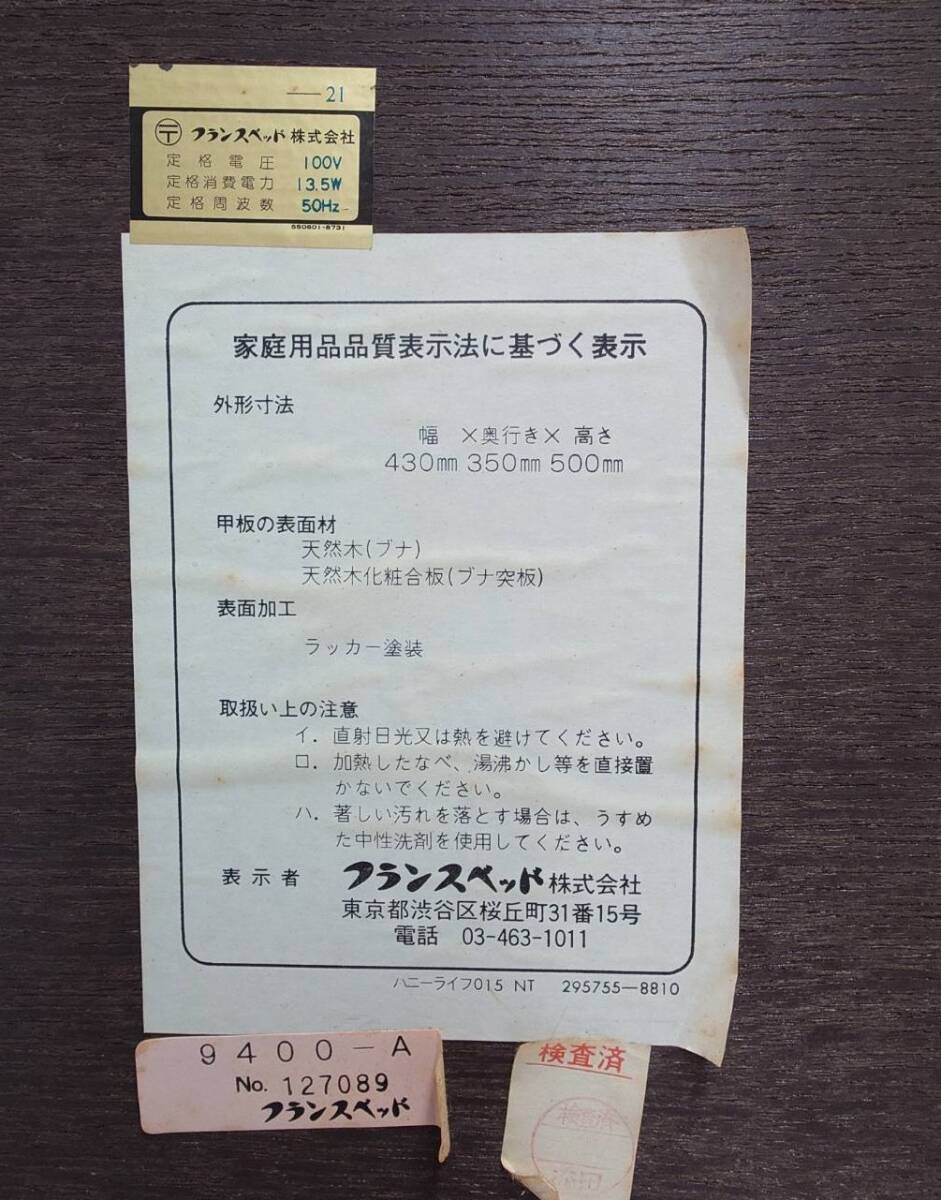 —21
〒 フランスベッド 株式会社
定格電圧 100V
定格消費電力 13.5W
定格周波数 50Hz
550601-8731
家庭用品品質表示法に基づく表示
外形寸法
幅 ×奥行き× 高さ
430mm 350mm 500mm
甲板の表面材
天然木(ブナ)
天然木化粧合板(ブナ突板)
表面加工
ラッカー塗装
取扱い上の注意
イ. 直射日光又は熱を避けてください。
ロ. 加熱したなべ、湯沸かし等を直接置
かないでください。
ハ. 著しい汚れを落とす場合は、うすめ
た中性洗剤を使用してください。
表示者 フランスベッド株式会社
東京都渋谷区桜丘町31番15号
電話 03-463-1011
ハニーライフ015 NT 295755-8810
9400-A
No. 127089
フランスベッド
検査済
検査済